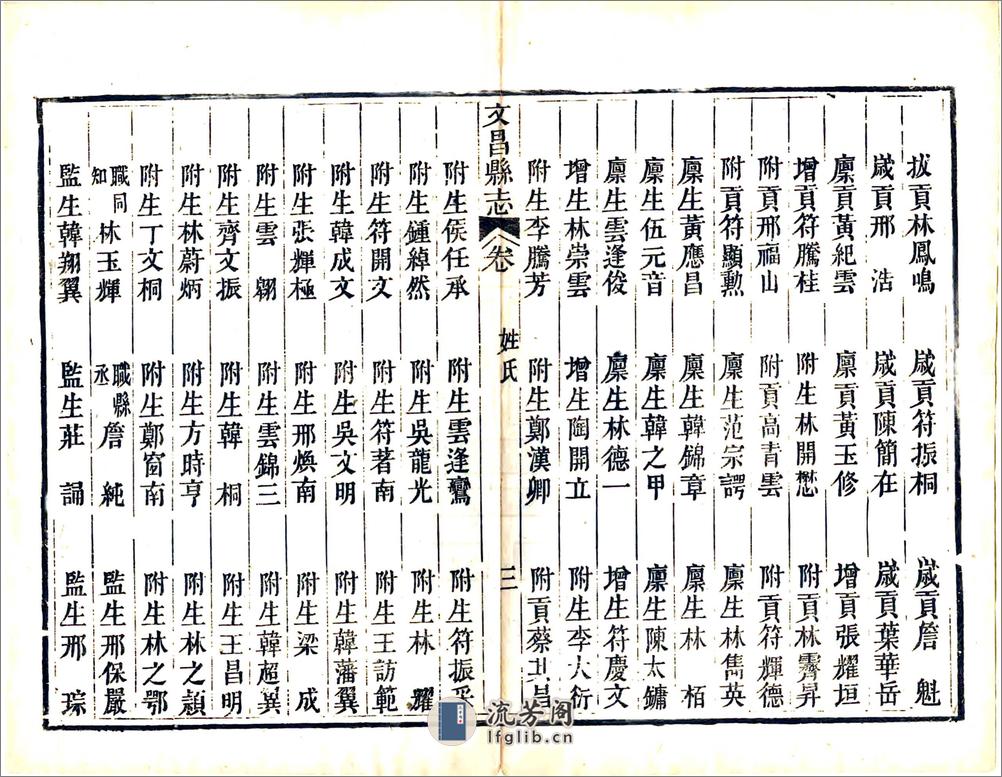 拔貢林鳳鳴 歲貢符振桐 歲貢詹 魁
歲貢邢 浩 歲貢陳簡在 歲貢葉華岳
廩貢黃紀雲 廩貢黃玉修 增貢張耀垣
增貢符騰桂 附生林開懋 附貢林霽昇
附貢邢福山 附貢高青雲 附貢符輝德
附貢符顯勲 廩生范宗諤 廩生林雋英
廩生黃應昌 廩生韓錦章 廩生林 栢
廩生伍元音 廩生韓之甲 廩生陳太鏞
廩生雲逢俊 廩生林德一 增生符慶文
增生林崇雲 增生陶開立 附生李大衍
附生李騰芳 附生鄭漢卿 附貢蔡其昌
文昌縣志 卷 姓氏 三
附生侯任承 附生雲逢鸞 附生符振采
附生鍾綽然 附生吳龍光 附生林 耀
附生符開文 附生符著南 附生王訪範
附生韓成文 附生吳文明 附生韓藩翼
附生張輝極 附生邢煥南 附生梁 成
附生雲 翱 附生雲錦三 附生韓超翼
附生齊文振 附生韓 桐 附生王昌明
附生林蔚炳 附生方時亨 附生林之穎
附生丁文桐 附生鄭窗南 附生林之鄂
職同知林玉輝 職縣丞詹 純 監生邢保嚴
監生韓翔翼 監生莊 誦 監生邢 琮
流芳閣
lfglib.cn